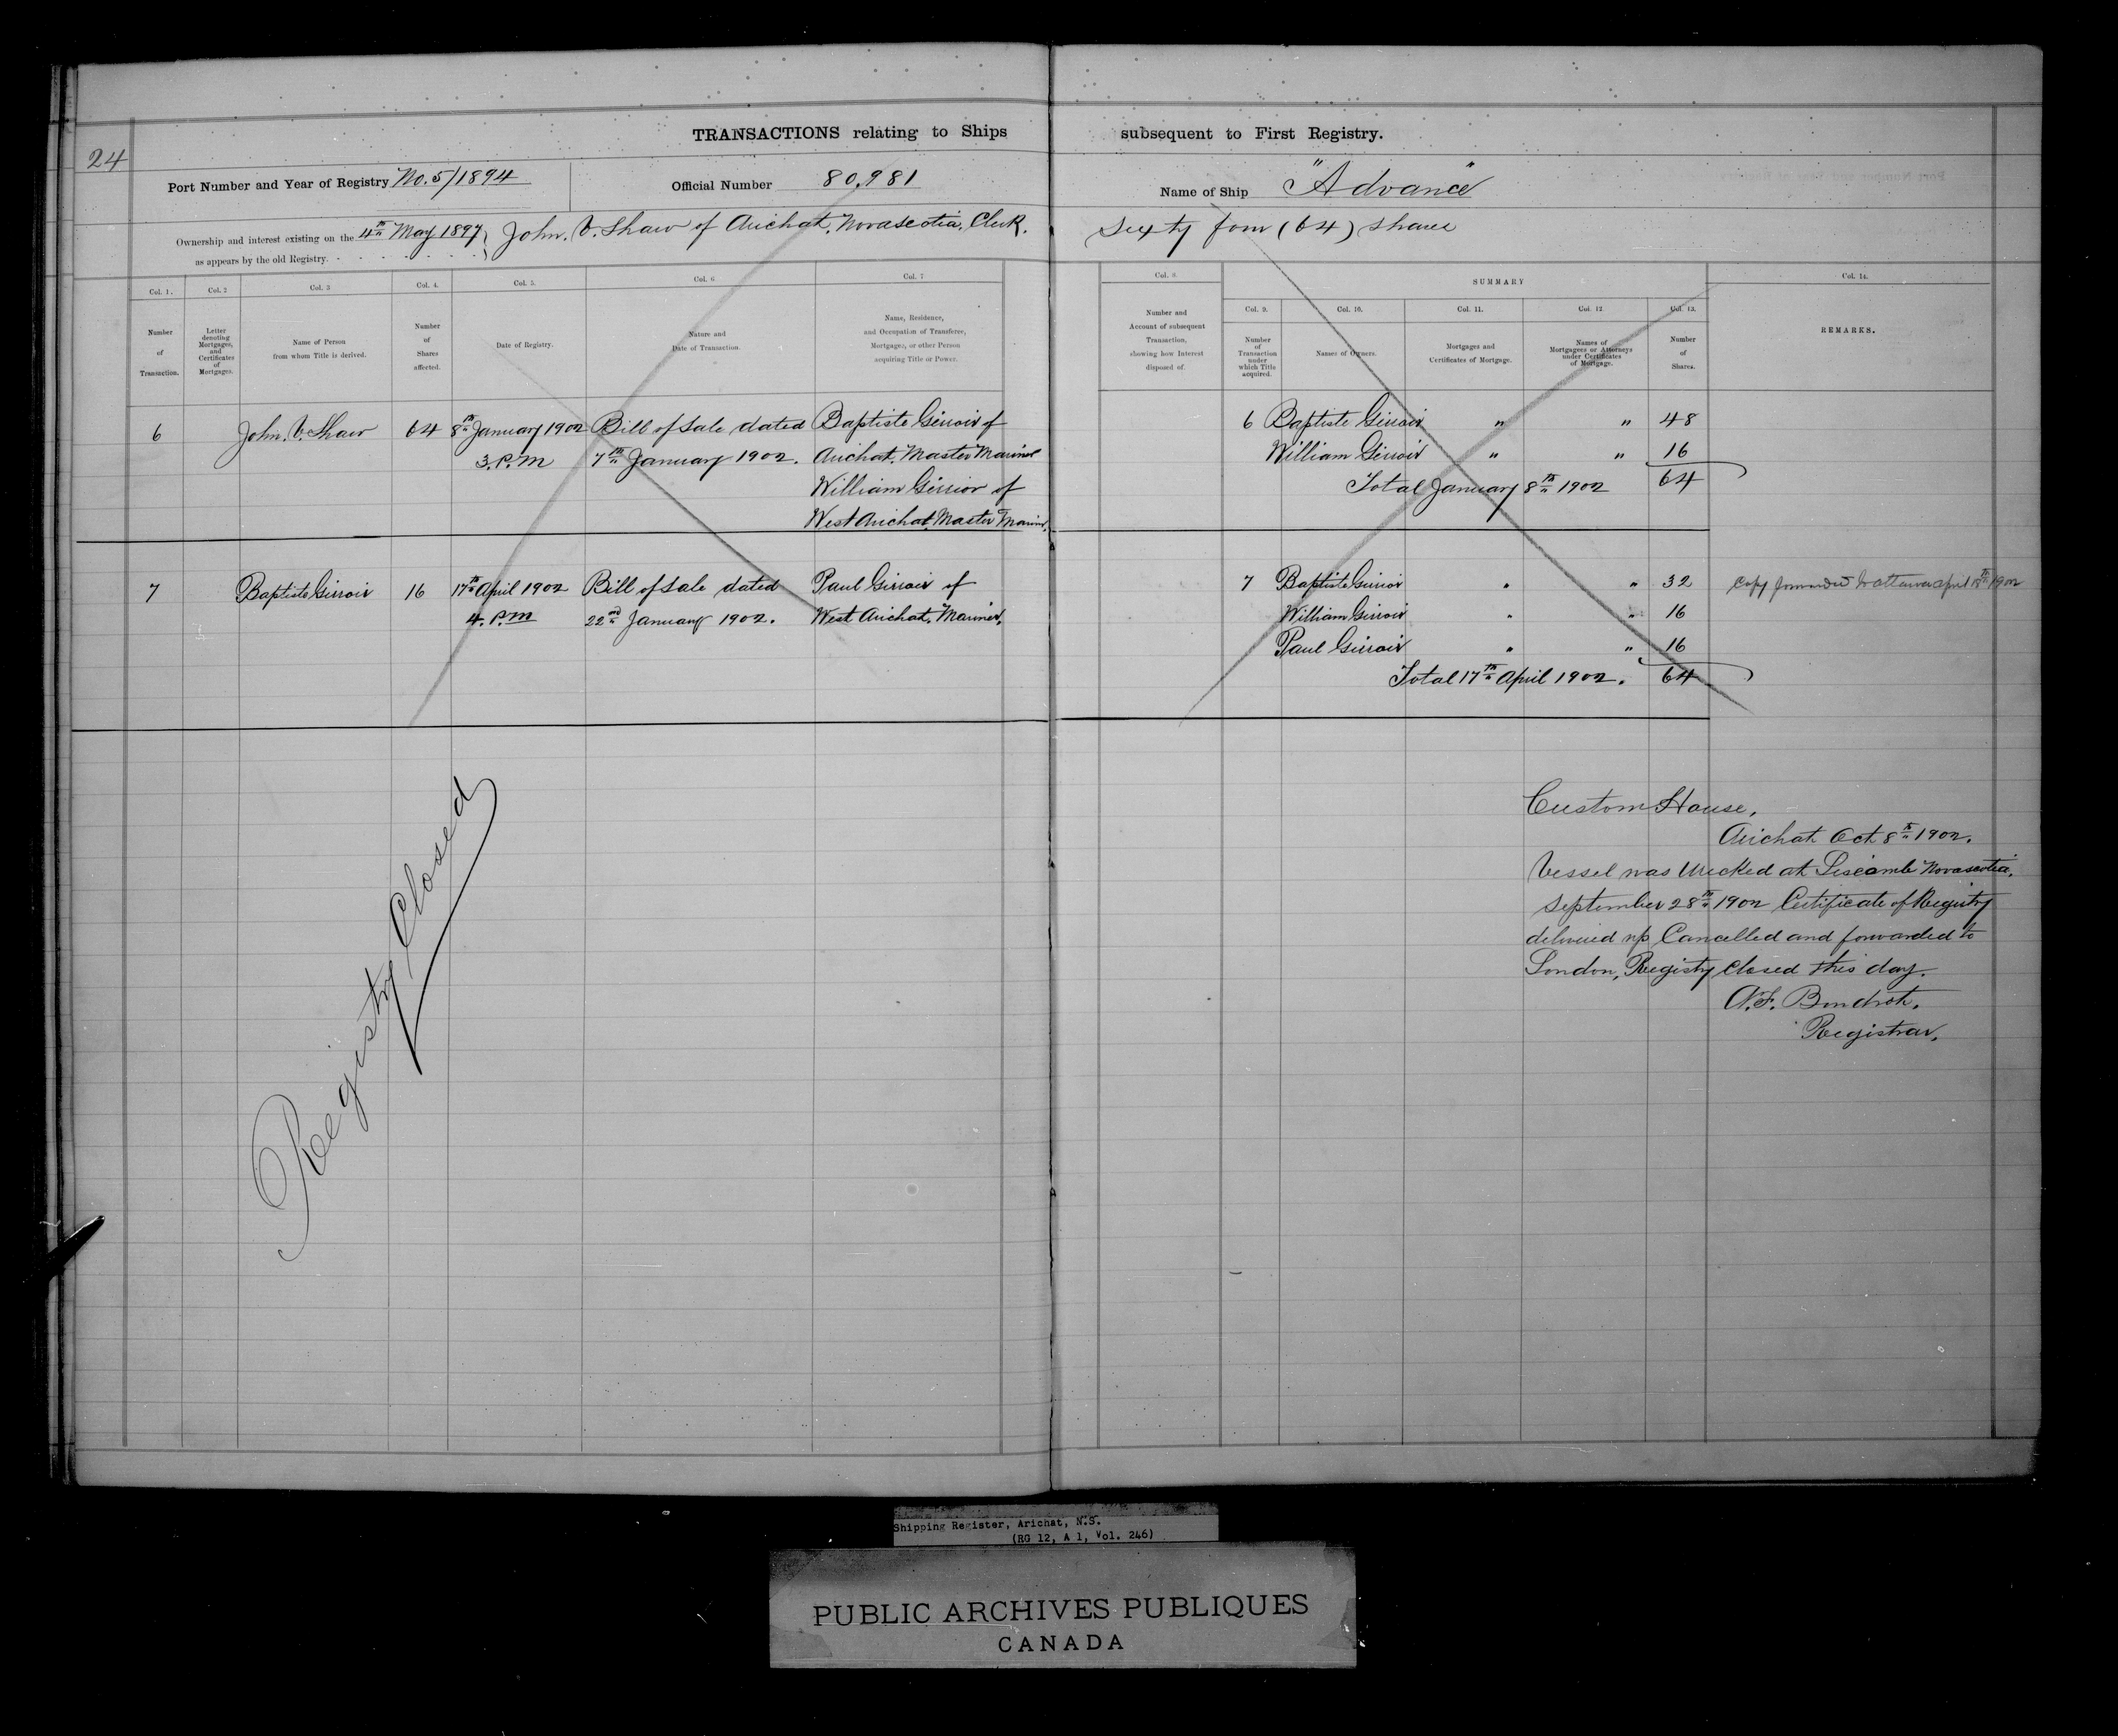 24
TRANSACTIONS relating to Ships subsequent to First Registry.
Port Number and Year of Registry No. 5/1894 Official Number 80,981 Name of Ship "Advance"
Ownership and interest existing on the 4th May 1897 John. V. Shaw of Arichat, Novascotia, Clerk. Sixty four (64) shares
as appears by the old Registry.
Col. 1. Col. 2 Col. 3 Col. 4. Col. 5. Col. 6 Col. 7 Col. 8 SUMMARY Col. 14.
Col. 9. Col. 10. Col. 11. Col. 12. Col. 13.
Number
of
Transaction.
Letter
denoting
Mortgages,
and
Certificates
of
Mortgages.
Name of Person
from whom Title is derived.
Number
of
Shares
affected.
Date of Registry.
Nature and
Date of Transaction.
Name, Residence,
and Occupation of Transferee,
Mortgagee, or other Person
acquiring Title or Power.
Number and
Account of subsequent
Transaction,
showing how Interest
disposed of.
Number
of
Transaction
under
which Title
acquired.
Names of Owners.
Mortgages and
Certificates of Mortgage.
Names of
Mortgagees or Attorneys
under Certificates
of Mortgage.
Number
of
Shares.
REMARKS.
6 John. V. Shaw 64 8th January 1902 Bill of Sale dated Baptiste Girroir of
3. P.M 7th January 1902. Arichat, Master Mariner
William Girrior of
West Arichat, Master Marin.
6 Baptiste Girroir " " 48
William Girroir " " 16
Total January 8th 1902 64
7 Baptiste Girroir 16 17th April 1902 Bill of Sale dated Paul Girroir of
4. P.M 22nd January 1902. West Arichat, Mariner.
7 Baptiste Girroir " " 32 Copy forwarded to Ottawa April 18th 1902
William Girroir " " 16
Paul Girroir " " 16
Total 17th April 1902. 64
Registry Closed
Custom House,
Arichat Oct 8th 1902.
Vessel was Wrecked at Liscomb Novascotia,
September 28th 1902 Certificate of Registry
delivered up Cancelled and forwarded to
London, Registry Closed this day.
Registrar.
Shipping Register, Arichat, N.S.
(RG 12, A 1, Vol. 246)
PUBLIC ARCHIVES PUBLIQUES
CANADA